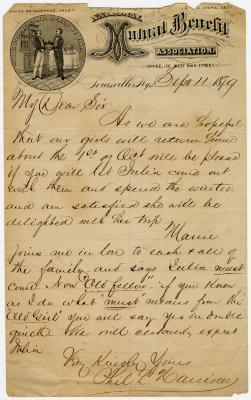 NATIONAL
Mutual Benefit
ASSOCIATION.
OFFICE, 120 WEST MAIN STREET.
Louisville Ky Sept 11 1879
My Dear Sir
As we are hopeful
that our girls will return home
about the 1st of Oct will be pleased
if you will let Julia come out
with them and spend the winter
and am satisfied she will be
delighted with her trip
Mamie
joins me in love to each & all of
the family and says Julia must
come. Now "Old fellow" if you knew
as I do what "must" means from this
"Old Girl" you will say yes in double
quick We will certainly expect
Julia
Very Kindly Yours
Phil L Harrison